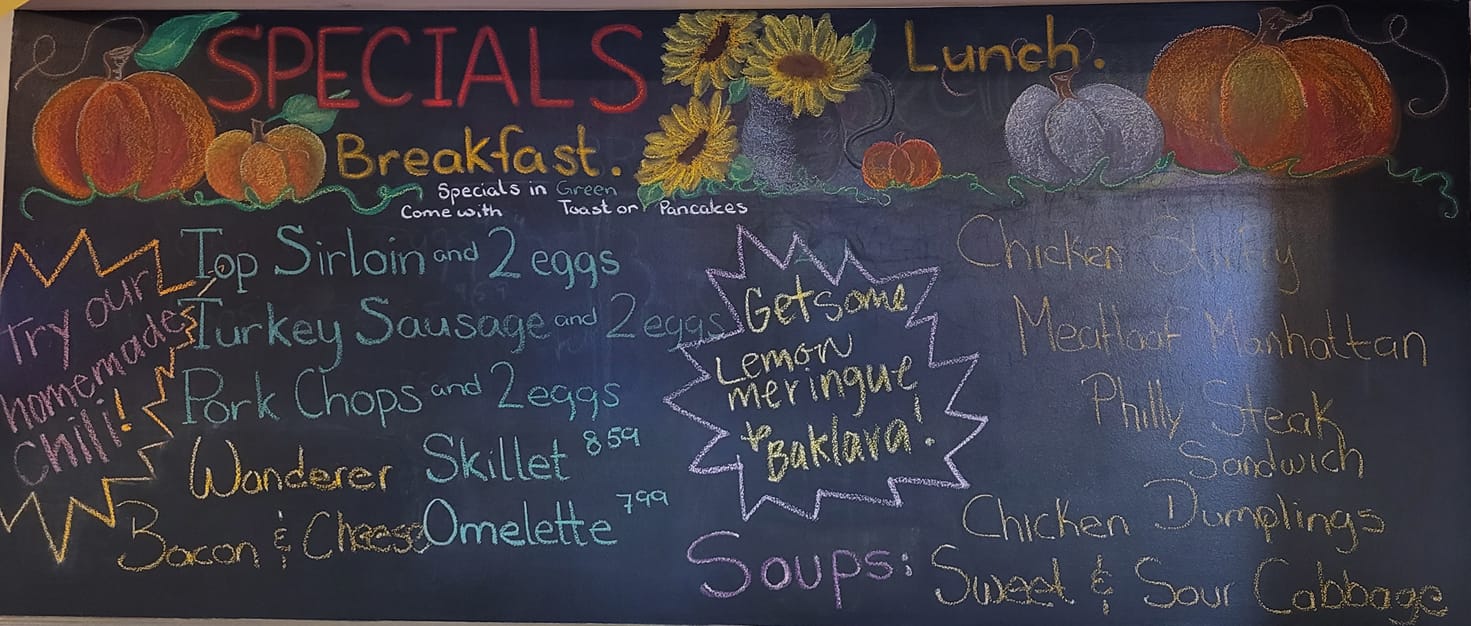 SPECIALS
Breakfast.
Specials in Green
Come with Toast or Pancakes
Try our
homemade
Chili!
Top Sirloin and 2 eggs
Turkey Sausage and 2 eggs
Pork Chops and 2 eggs
Wanderer Skillet 859
Bacon & Cheese Omelette 799
Get some
Lemon
meringue
or Baklava!
Lunch.
Chicken Stir Fry
Meatloaf Manhattan
Philly Steak
Sandwich
Chicken Dumplings
Soups: Sweet & Sour Cabbage